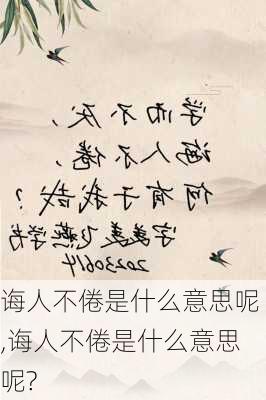 学而不厌、
诲人不倦、
何有于我哉？
飞燕学书
20230614
诲人不倦是什么意思呢
,诲人不倦是什么意思
呢?